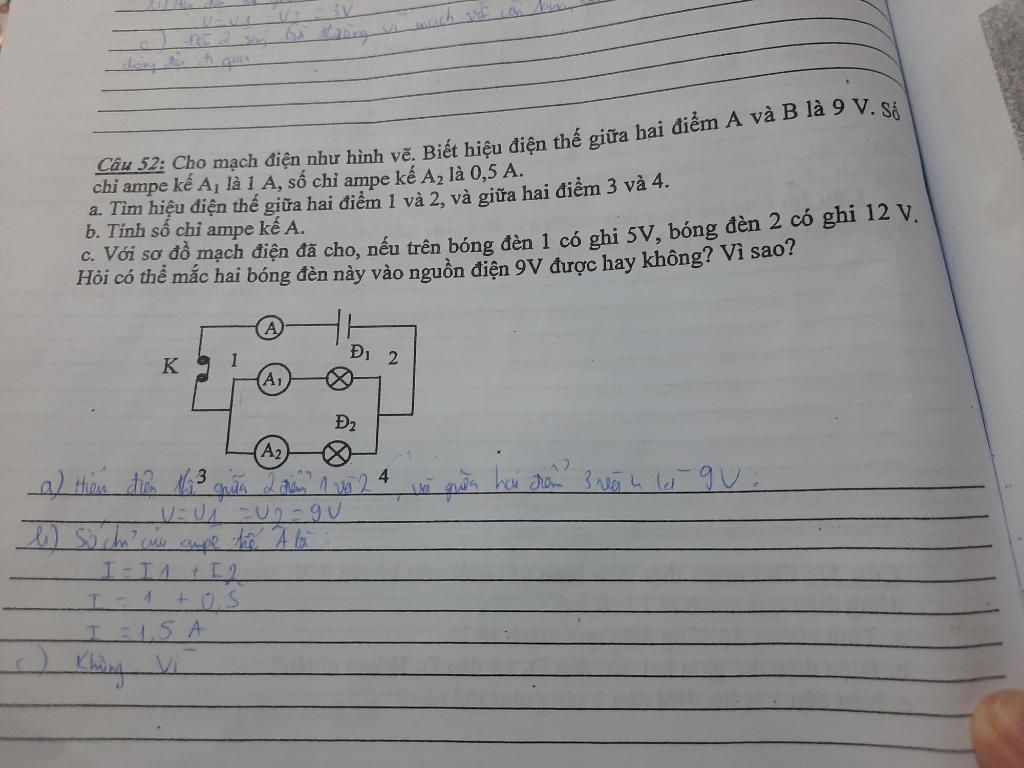 U = U1 = U2 = 3V
c)
dòng điện đi qua
Câu 52: Cho mạch điện như hình vẽ. Biết hiệu điện thế giữa hai điểm A và B là 9 V. Số
chỉ ampe kế A₁ là 1 A, số chỉ ampe kế A₂ là 0,5 A.
a. Tìm hiệu điện thế giữa hai điểm 1 và 2, và giữa hai điểm 3 và 4.
b. Tính số chỉ ampe kế A.
c. Với sơ đồ mạch điện đã cho, nếu trên bóng đèn 1 có ghi 5V, bóng đèn 2 có ghi 12 V.
Hỏi có thể mắc hai bóng đèn này vào nguồn điện 9V được hay không? Vì sao?
A
K 1 Đ₁ 2
A₁
Đ₂
A₂
3 4
a) Hiệu điện thế giữa 2 điểm 1 và 2, và giữa hai điểm 3 và 4 là 9V:
U = U1 = U2 = 9V
b) Số chỉ của ampe kế A là:
I = I1 + I2
I = 1 + 0,5
I = 1,5 A
c) Không. Vì